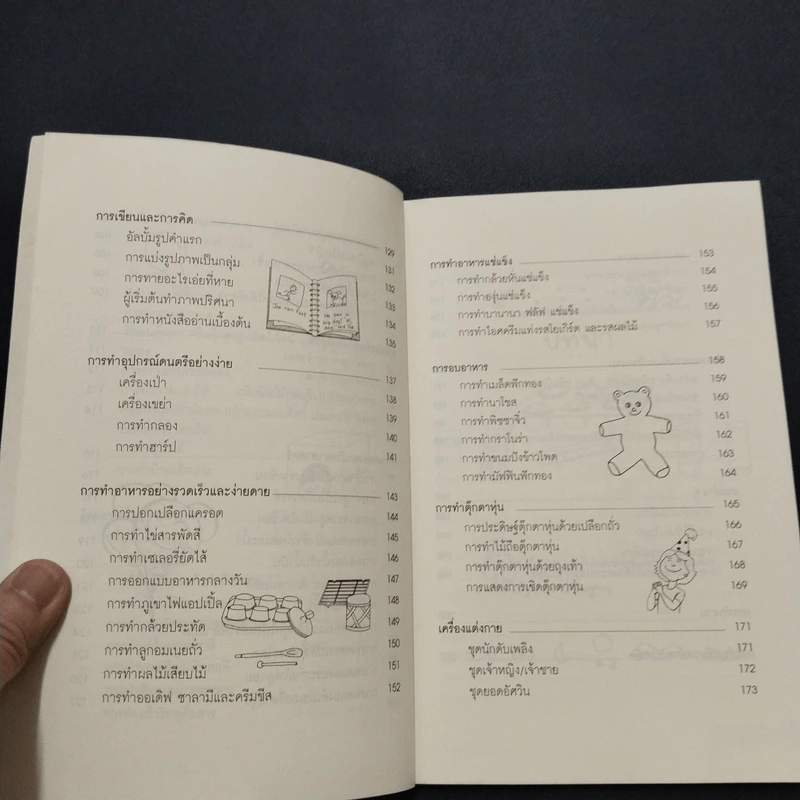 การเขียนและการคิด 129
อัลบั้มรูปคำแรก 131
การแบ่งรูปภาพเป็นกลุ่ม 132
การทายอะไรเอ่ยที่หาย 133
ผู้เริ่มต้นทำภาพปริศนา 134
การทำหนังสืออ่านเบื้องต้น 135
การทำอุปกรณ์ดนตรีอย่างง่าย 137
เครื่องเป่า 138
เครื่องเขย่า 139
การทำกลอง 140
การทำฮาร์ป 141
การทำอาหารอย่างรวดเร็วและง่ายดาย 143
การปอกเปลือกแครอต 144
การทำไข่สารพัดสี 145
การทำเซเลอรี่ยัดไส้ 146
การออกแบบอาหารกลางวัน 147
การทำภูเขาไฟแอปเปิ้ล 148
การทำกล้วยประทัด 149
การทำลูกอมเนยถั่ว 150
การทำผลไม้เสียบไม้ 151
การทำออเดิฟ ซาลามีและครีมชีส 152
การทำอาหารแช่แข็ง 153
การทำกล้วยหั่นแช่แข็ง 154
การทำองุ่นแช่แข็ง 155
การทำบานานา ฟลัฟ แช่แข็ง 156
การทำไอศครีมแท่งรสโยเกิร์ต และรสผลไม้ 157
การอบอาหาร 158
การทำเมล็ดฟักทอง 159
การทำนาโชส 160
การทำพิซซาจิ๋ว 161
การทำกราโนร่า 162
การทำขนมปังข้าวโพด 163
การทำมัฟฟินฟักทอง 164
การทำตุ๊กตาหุ่น 165
การประดิษฐ์ตุ๊กตาหุ่นด้วยเปลือกถั่ว 166
การทำไม้ถือตุ๊กตาหุ่น 167
การทำตุ๊กตาหุ่นด้วยถุงเท้า 168
การแสดงการเชิดตุ๊กตาหุ่น 169
เครื่องแต่งกาย 171
ชุดนักดับเพลิง 171
ชุดเจ้าหญิง/เจ้าชาย 172
ชุดยอดอัศวิน 173